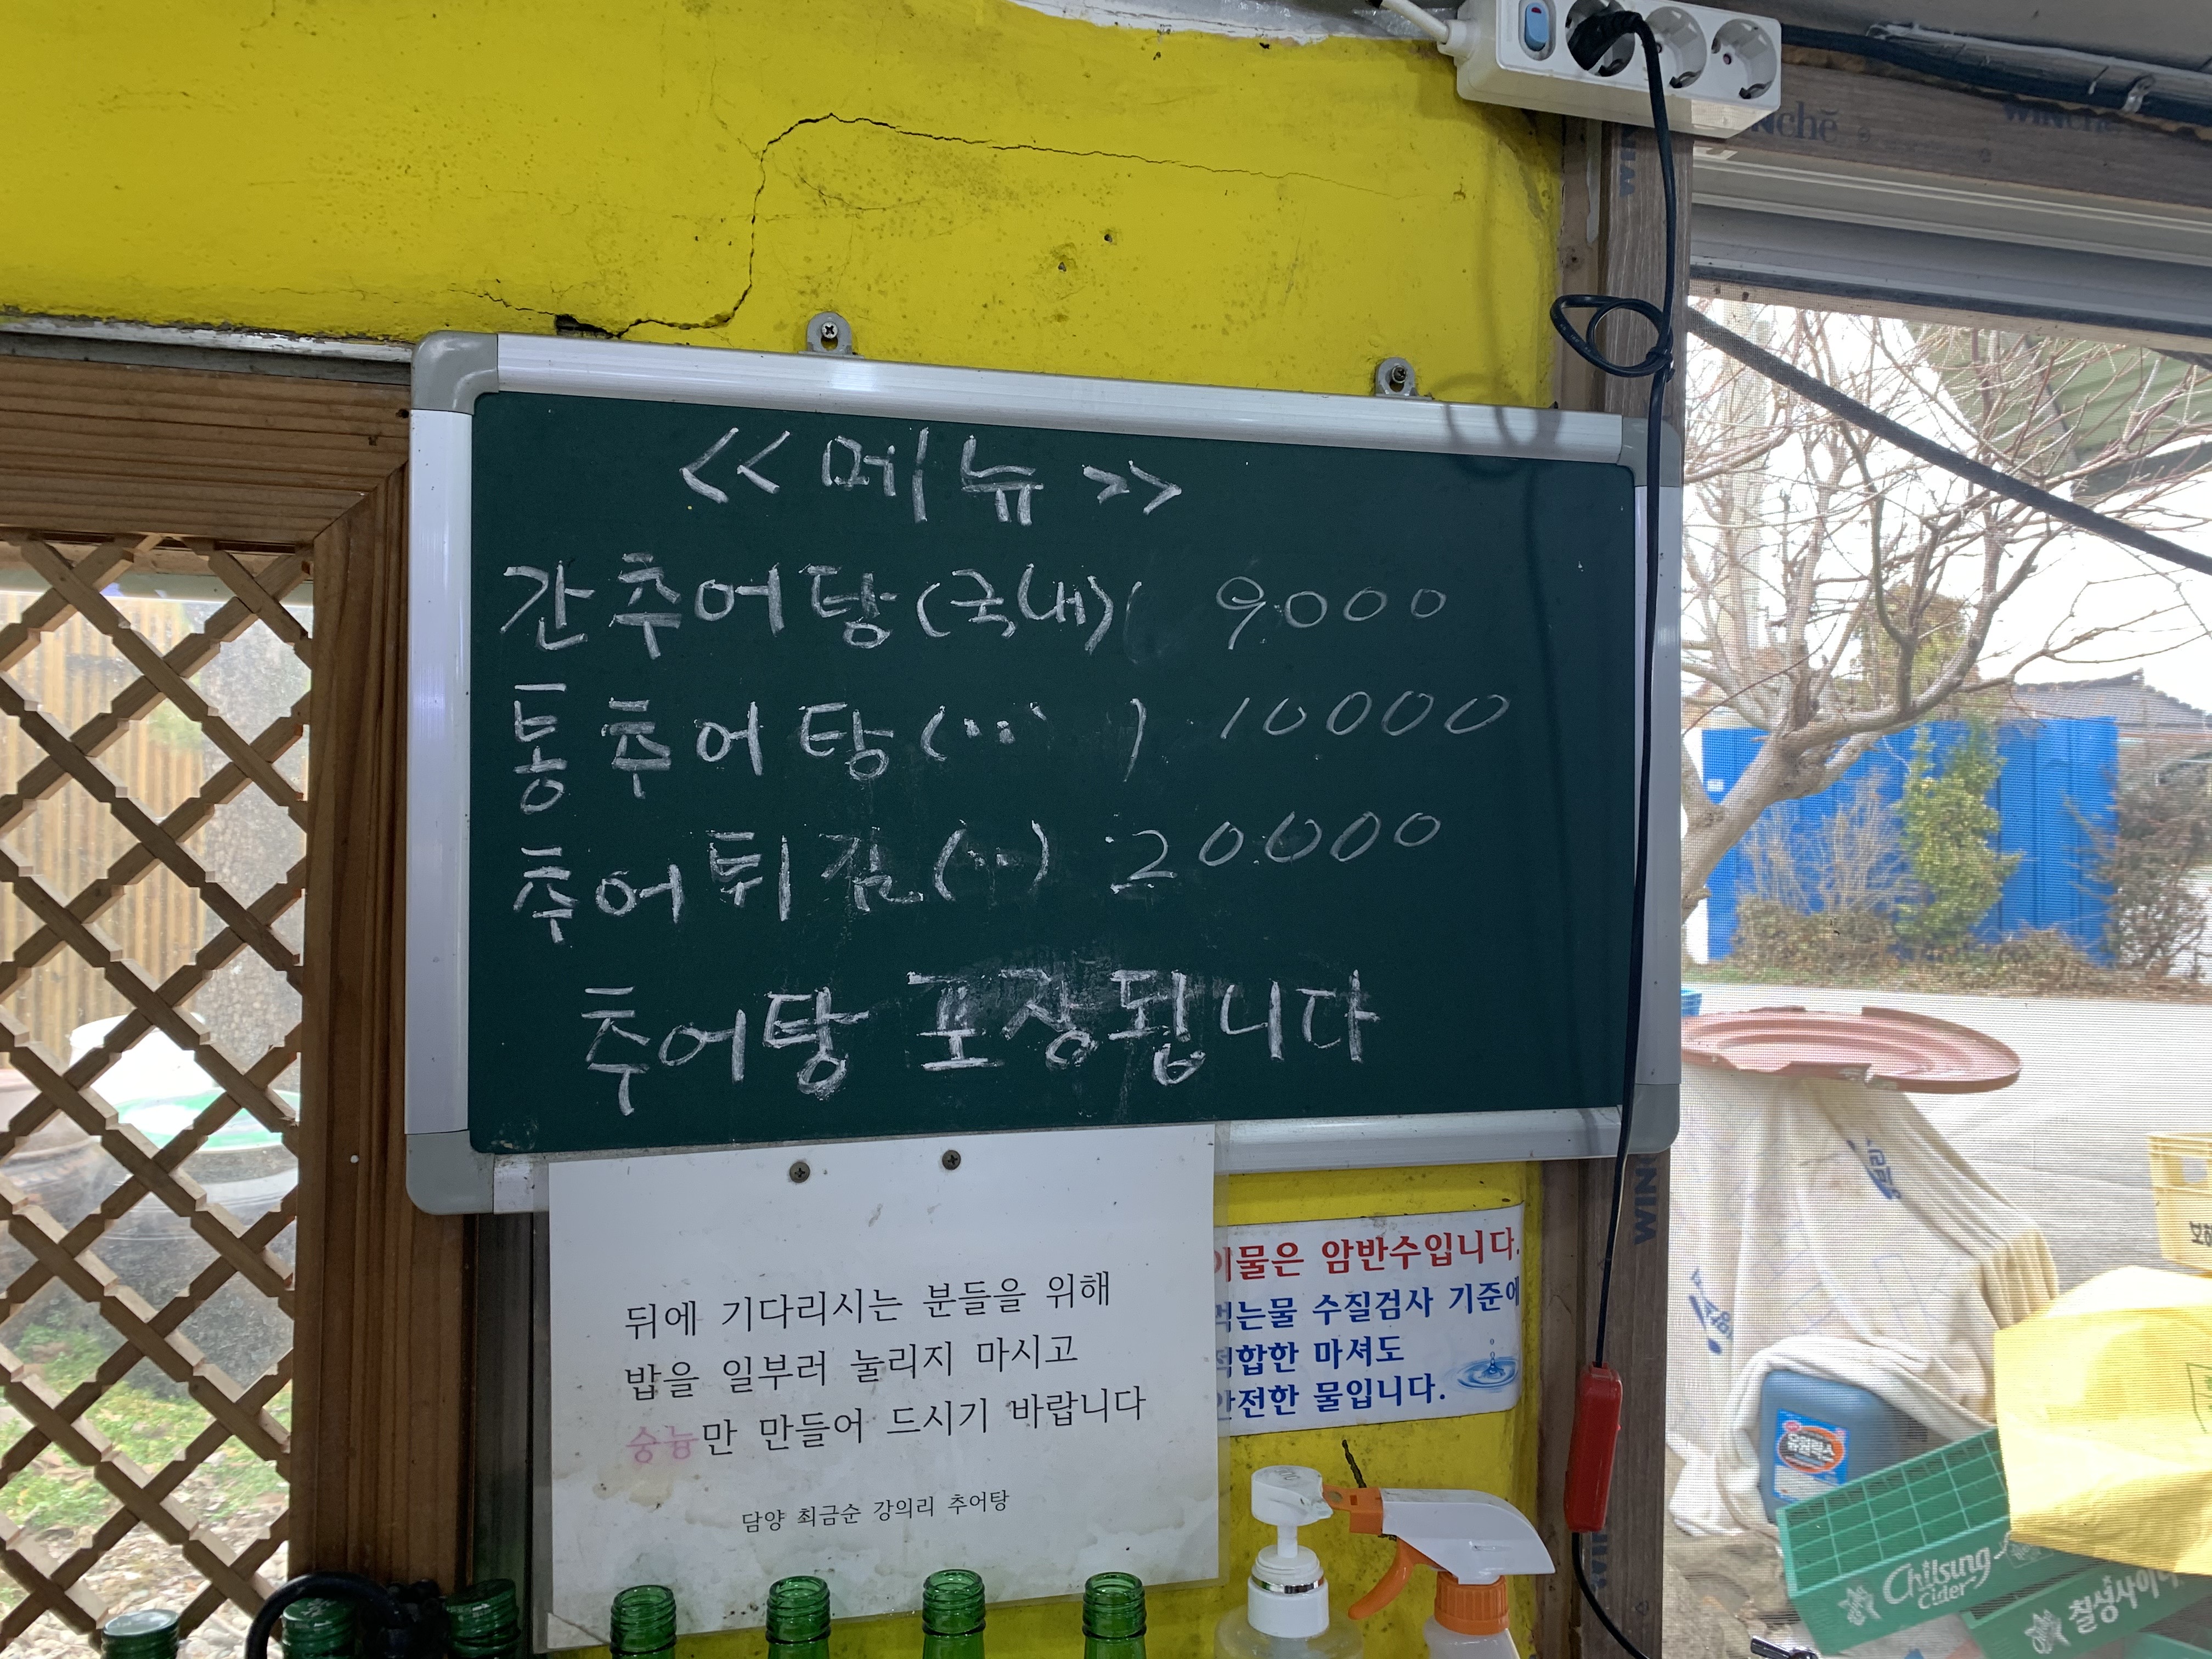 << 메뉴 >>
간추어탕(국내)( 9000
통추어탕(〃 ) 10000
추어튀김(〃) 20000
추어탕 포장됩니다
뒤에 기다리시는 분들을 위해
밥을 일부러 눌리지 마시고
숭늉만 만들어 드시기 바랍니다
담양 최금순 강의리 추어탕
이물은 암반수입니다.
먹는물 수질검사 기준에
적합한 마셔도
안전한 물입니다.
WINchē
유한락스
Chilsung
Cider
칠성사이다